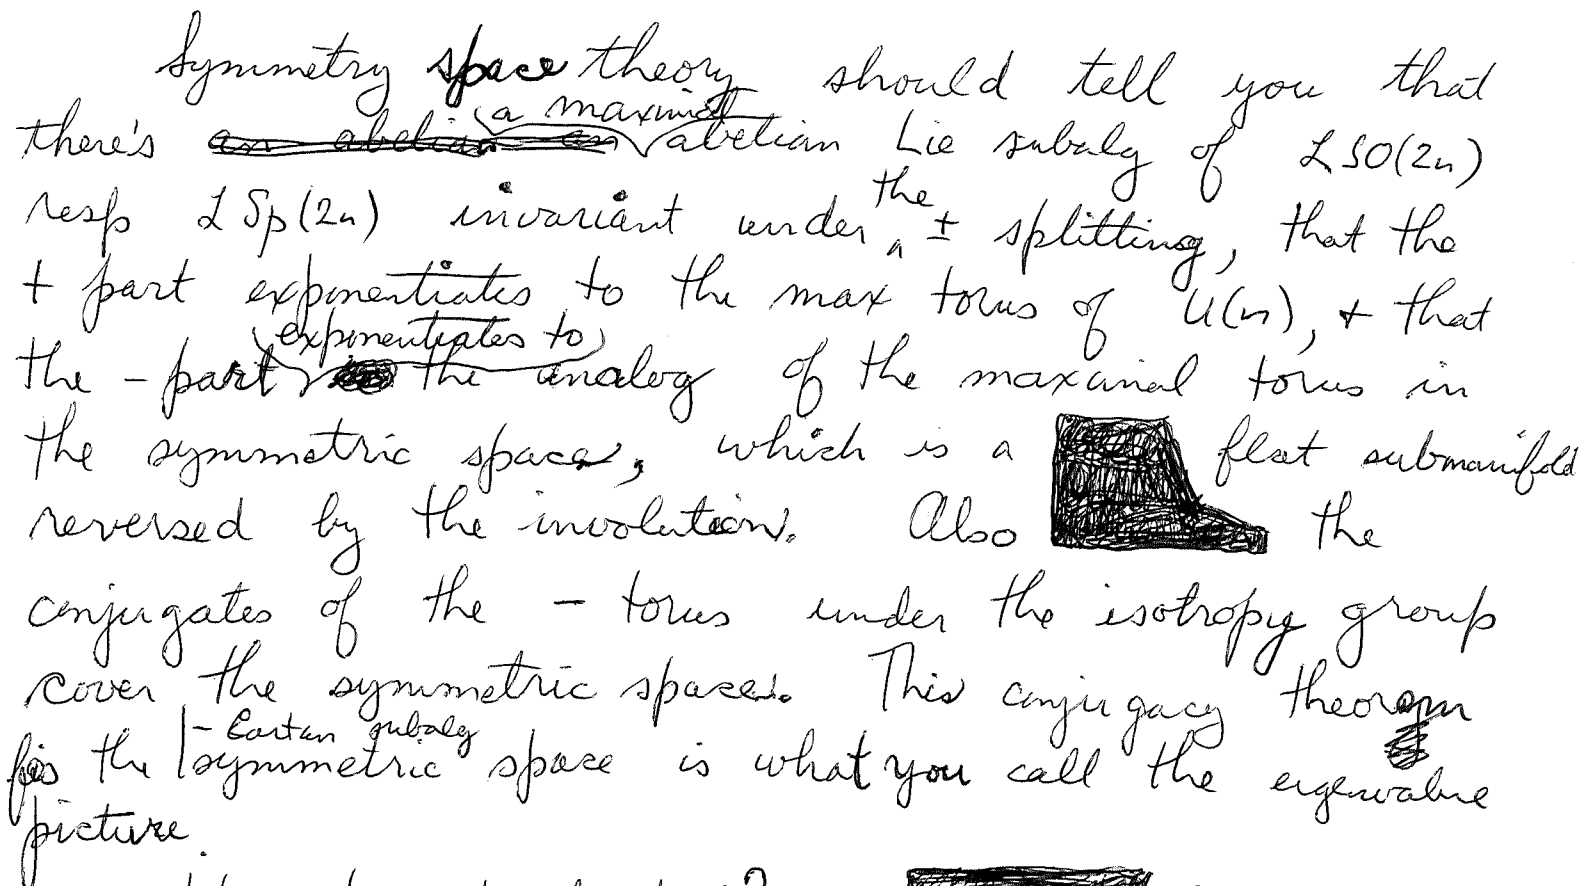 Symmetry space theory should tell you that
there's a maximal abelian Lie subalg of L SO(2n)
resp L Sp(2n) invariant under the ± splitting, that the
+ part exponentiates to the max torus of U(n), + that
the - part exponentiates to the analog of the maximal torus in
the symmetric space, which is a flat submanifold
reversed by the involution. Also the
conjugates of the - torus under the isotropy group
cover the symmetric space. This conjugacy theorem
for the - Cartan subalg symmetric space is what you call the eigenvalue
picture.